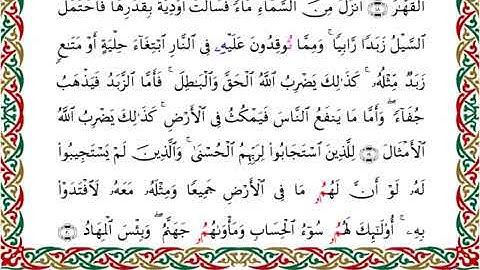 ٱلْقَهَّـٰرُ أَنزَلَ مِنَ ٱلسَّمَآءِ مَآءً فَسَالَتْ أَوْدِيَةُۢ بِقَدَرِهَا فَٱحْتَمَلَ
ٱلسَّيْلُ زَبَدًا رَّابِيًا ۚ وَمِمَّا تُوقِدُونَ عَلَيْهِۦ فِى ٱلنَّارِ ٱبْتِغَآءَ حِلْيَةٍ أَوْ مَتَـٰعٍ
زَبَدٌ مِّثْلُهُۥ ۚ كَذَٰلِكَ يَضْرِبُ ٱللَّهُ ٱلْحَقَّ وَٱلْبَـٰطِلَ ۚ فَأَمَّا ٱلزَّبَدُ فَيَذْهَبُ
جُفَآءً ۖ وَأَمَّا مَا يَنفَعُ ٱلنَّاسَ فَيَمْكُثُ فِى ٱلْأَرْضِ ۚ كَذَٰلِكَ يَضْرِبُ ٱللَّهُ
ٱلْأَمْثَالَ لِلَّذِينَ ٱسْتَجَابُوا۟ لِرَبِّهِمُ ٱلْحُسْنَىٰ ۚ وَٱلَّذِينَ لَمْ يَسْتَجِيبُوا۟
لَهُۥ لَوْ أَنَّ لَهُمُۥ مَا فِى ٱلْأَرْضِ جَمِيعًا وَمِثْلَهُۥ مَعَهُۥ لَٱفْتَدَوْا۟
بِهِۦٓ ۚ أُو۟لَـٰٓئِكَ لَهُمُۥ سُوٓءُ ٱلْحِسَابِ وَمَأْوَىٰهُمُۥ جَهَنَّمُ ۖ وَبِئْسَ ٱلْمِهَادُ